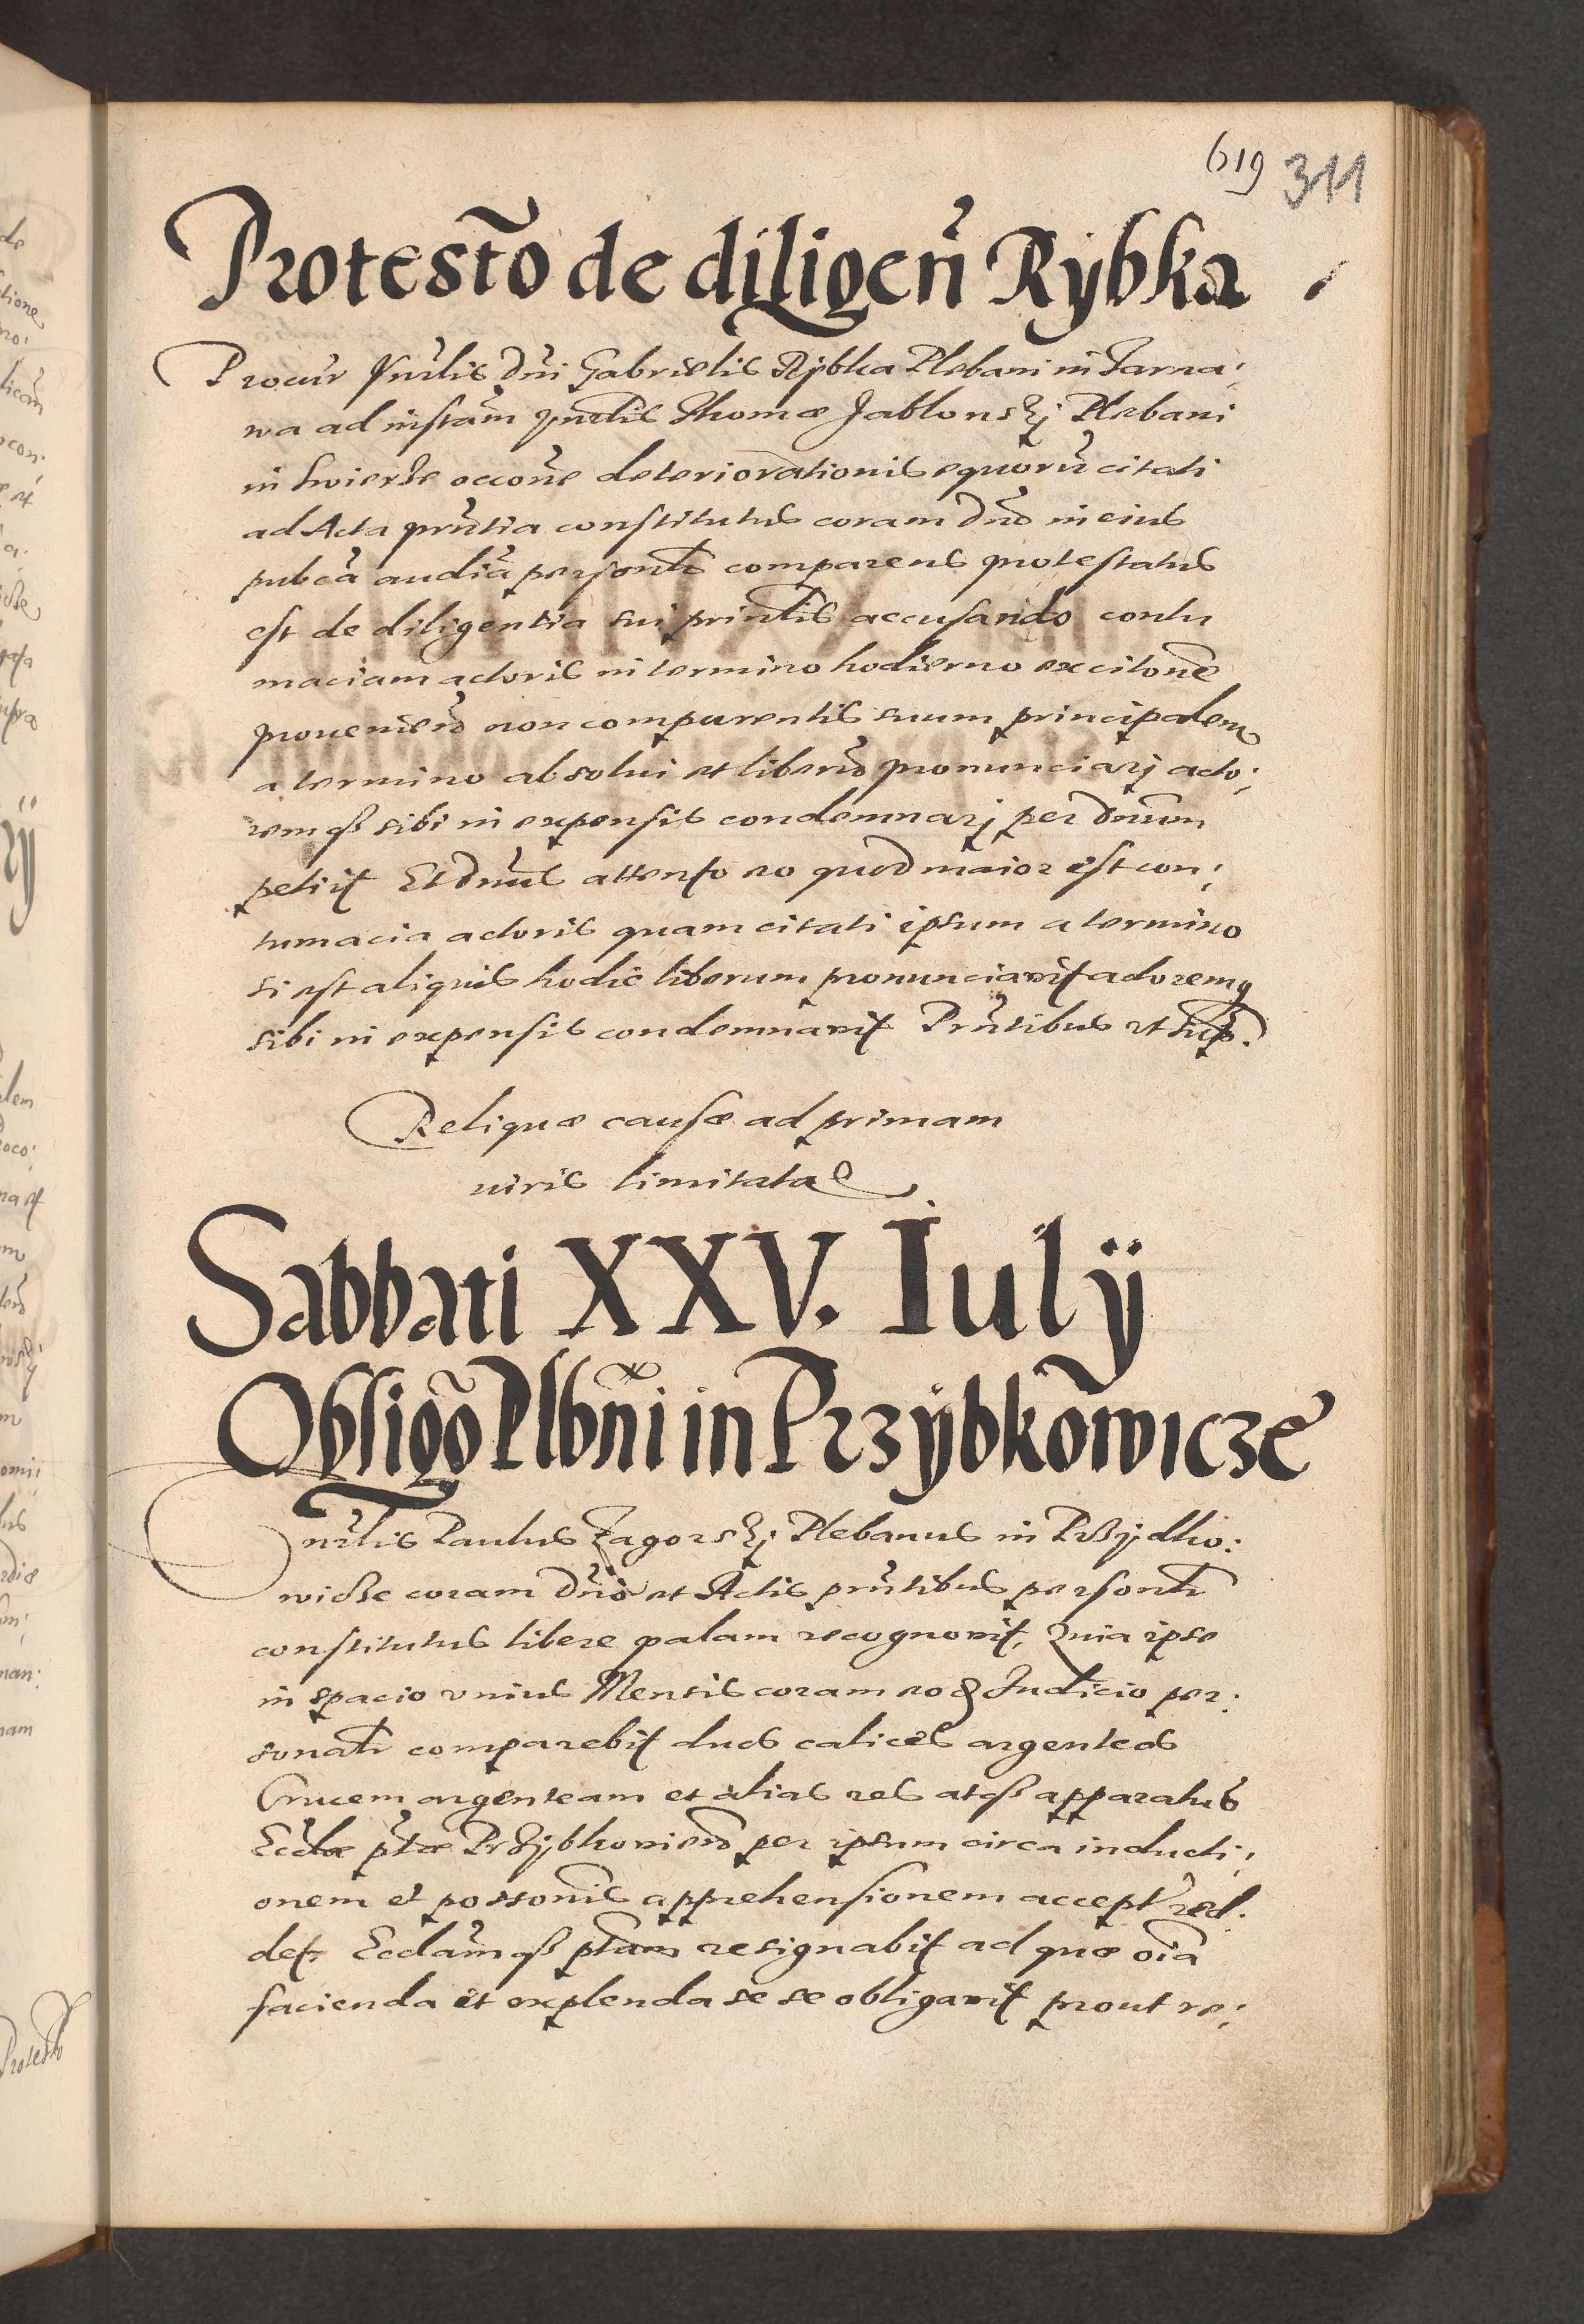 619 311
Protesto de diligen Rybka
Procur Vnrlis Dni Gabrielis Rybka Plebani in Tarna:
wa ad instam vnrlis Thomæ Jablonskj Plebani
in Swierze occone deteriorationis equoru citati
ad Acta prntia constitutus coram Dno in eius
pubca audia personlr comparens protestatus
est de diligentia sui prinlis accusando contu
maciam actoris in termino hodierno ex citone
provenien non comparentis suum principalem
a termino absolui et liberu pronunciarj acto:
remqz sibi in expensis condemnarj per Dnum
petiit Et Dnus attento eo quod maior est con:
tumacia actoris quam citati ipsum a termino
si est aliquis hodie liberum pronunciavit actoremq
sibi in expensis condemnavit Prntibus ut sup.
Reliquæ causæ ad primam
iuris limitatæ
Sabbati XXV. Iulij
Obligo Plbni in Przybkowicze
Vnrlis Paulus Zagorskj Plebanus in Przybko:
wicze coram Dno et Actis prntibus personlr
constitutus libere palam recognovit, Quia ipse
in spacio vnius Mensis coram eod Judicio per:
sonalr comparebit duos calices argenteos
Crucem argenteam et alias res atqz apparatus
Eccliæ ptæ Przybkovien per ipsum circa inducti:
onem et possonis apprehensionem accept red:
det Eccliamqz ptam resignabit ad quæ oia
facienda et explenda se se obligavit prout re: